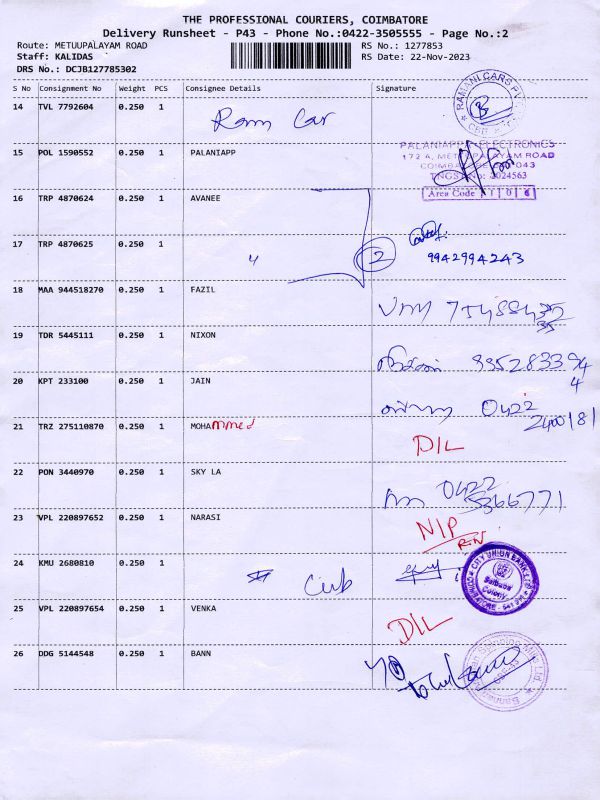 THE PROFESSIONAL COURIERS, COIMBATORE
Delivery Runsheet - P43 - Phone No.:0422-3505555 - Page No.:2
Route: METUUPALAYAM ROAD RS No.: 1277853
Staff: KALIDAS RS Date: 22-Nov-2023
DRS No.: DCJB127785302
S No Consignment No Weight PCS Consignee Details Signature
14 TVL 7792604 0.250 1 Ram Car RAMANI CARS
15 POL 1590552 0.250 1 PALANIAPP
PALANIAPPA ELECTRONICS
172 A, METTUPALAYAM ROAD
Area Code 1 0 6
16 TRP 4870624 0.250 1 AVANEE
17 TRP 4870625 0.250 1 4 2 9942994243
18 MAA 944518270 0.250 1 FAZIL
19 TDR 5445111 0.250 1 NIXON
20 KPT 233100 0.250 1 JAIN 0422
2400181
21 TRZ 275110870 0.250 1 MOHAmmed D/L
22 PON 3440970 0.250 1 SKY LA 0422
5366771
23 VPL 220897652 0.250 1 NARASI N/P
24 KMU 2680810 0.250 1 Cub CITY UNION BANK LTD Saibaba Colony
25 VPL 220897654 0.250 1 VENKA D/L
26 DDG 5144548 0.250 1 BANN